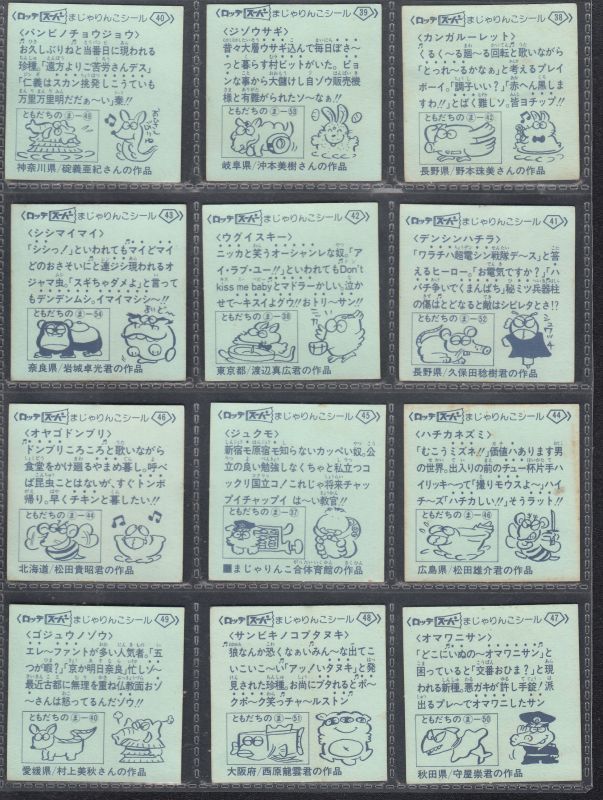 ロッテ スーパー まじゃりんこシール 40
〈バンビノチョウジョウ〉
お久しぶりねと当番日に現われる
珍種。「遠方よりご苦労さんデス」
「仁義はスカン挑発しこうていも
万里万里明だだぁ〜い」秦!!
ともだちの ま-48
神奈川県/碇義亜紀さんの作品
ロッテ スーパー まじゃりんこシール 39
〈ジゾウサギ〉
昔々大層ウサギ込んで毎日ぼさ〜
っと暮らす村にピットがいた。ピョ
ンな事から大儲けし自ゾウ販売機
様と有義がられたソ〜なぁ!!
ともだちの ま-53
岐阜県/沖本美樹さんの作品
ロッテ スーパー まじゃりんこシール 38
〈カンガルーレット〉
くる〜くる廻〜る回転と歌いながら
「とっれ〜るかなぁ」と考えるプレイ
ボーイ。「調子いい?」「赤へん黒しま
すわ!!」とばく難しソ。皆ヨチップ!!
ともだちの ま-42
長野県/野本珠美さんの作品
ロッテ スーパー まじゃりんこシール 43
〈シシマイマイ〉
「シシっ!」といわれてもマイどマイ
どのおさそいにと連ジシ現われるオ
ジャマ虫。「スギちゃダメよ」と言って
もデンデンムシ。イマイマシシ〜!!
ともだちの ま-54
奈良県/岩城卓光君の作品
ロッテ スーパー まじゃりんこシール 42
〈ウグイスキー〉
ニッカと笑うオーシャンレな奴。「ア
イ・ラブ・ユー!!」といわれてもDon't
kiss me babyとマドラーかしい。泣か
せて〜キスイよグウ!!おトリーサン!!
ともだちの ま-38
東京都/渡辺真広君の作品
ロッテ スーパー まじゃりんこシール 41
〈デンシンハチラ〉
「ワラチハ超電シン戦隊デース」と答
えるヒーロー。「お電気ですか?」「ハ
バチ争いでくまんばち」秘ミツ兵器柱
の傷はとどなると敵はシビレタとさ!?
ともだちの ま-52
長野県/久保田稔樹君の作品
ロッテ スーパー まじゃりんこシール 46
〈オヤゴドンブリ〉
ドンブリころころと歌いながら
食堂をかけ廻るやまめ暮し。呼べ
ば昆虫ことはないが、すぐトンボ
帰り。早くチキンと暮したい!!
ともだちの ま-44
北海道/松田貴昭君の作品
ロッテ スーパー まじゃりんこシール 45
〈ジュクモ〉
新宿モ原宿モ知らないカッペい奴。公
立の良い勉強しなくちゃと私立つコ
ックリ国立コノこれじゃ将来チャッ
プイチャップイ は〜い教官!!
ともだちの ま-37
■まじゃりんこ合体育館の作品
ロッテ スーパー まじゃりんこシール 44
〈ハチカネズミ〉
「むこうミズネ!!」価値ハあります男
の世界。出入りの前のチュー杯片手ハ
イリッキ〜って「撮りモウスよ〜」ハイ
チ〜ズ「ハチカしい!!」そうラット!!
ともだちの ま-46
広島県/松田雄介君の作品
ロッテ スーパー まじゃりんこシール 49
〈ゴジュウノゾウ〉
エレ〜ファントが多い人気者。「五
つが暇?」「京か明日奈良」忙しゾ〜
最近古都に無理を重ね仏教面おゾ
〜さんは怒ってるんだゾウ!!
ともだちの ま-40
愛媛県/村上美秋さんの作品
ロッテ スーパー まじゃりんこシール 48
〈サンビキノコブタヌキ〉
狼なんか恐くなぁいみん〜な出てこ
いこいこ〜い「アッノいタヌキ」と発
見された珍種。お尚にブタれるとポ〜ク
ポーク笑っチャールストン
ともだちの ま-51
大阪府/西原龍雲君の作品
ロッテ スーパー まじゃりんこシール 47
〈オマワニサン〉
「どこにいぬの〜オマワニサン」と
困っていると「交番おひま?」と現
われる新種。悪ガキが許し手錠「派
出るプレーでオマワニしたサン
ともだちの ま-50
秋田県/守屋崇君の作品